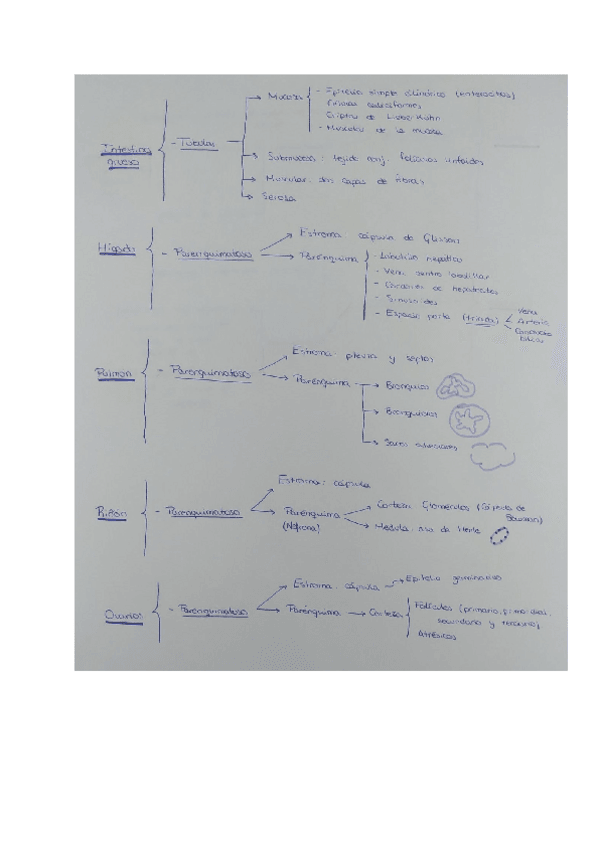 Intestino grueso
- Tubular
Mucosa
- Epitelio simple cilíndrico (enterocitos)
Células caliciformes
Criptas de Lieberkühn
- Muscular de la mucosa
Submucosa: tejido conj. folículos linfoides
Muscular: dos capas de fibras
Serosa
Hígado
- Parenquimatoso
Estroma: cápsula de Glisson
Parénquima
- Lobulillo hepático
- Vena centro lobulillar
- Cordones de hepatocitos
- Sinusoides
- Espacio porta (triada)
Vena
Arteria
Conducto biliar
Pulmón
- Parenquimatoso
Estroma: pleura y septos
Parénquima
Bronquios
Bronquiolos
Sacos alveolares
Riñón
- Parenquimatoso
Estroma: cápsula
Parénquima (Nefrona)
Corteza: Glomérulos (Cápsula de Bowman)
Médula: asa de Henle
Ovarios
- Parenquimatoso
Estroma: cápsula
Epitelio germinativo
Parénquima
Corteza
Folículos (primario, primordial, secundario y terciario)
Atrésicos